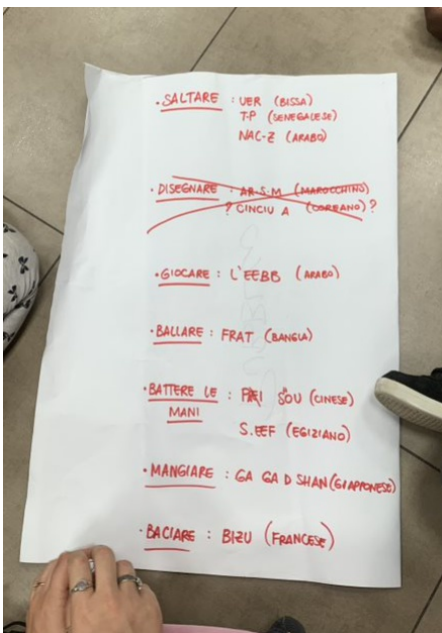 · SALTARE : UER (BISSA)
T-P (SENEGALESE)
NAC-Z (ARABO)
· DISEGNARE : AR-S-M (MAROCCHINO)
? CINCIU A (COREANO) ?
· GIOCARE : L'EEBB (ARABO)
· BALLARE : FRAT (BANGLA)
· BATTERE LE : PAI SOU (CINESE)
MANI
S.EEF (EGIZIANO)
· MANGIARE : GA GA D SHAN (GIAPPONESE)
· BACIARE : BIZU (FRANCESE)